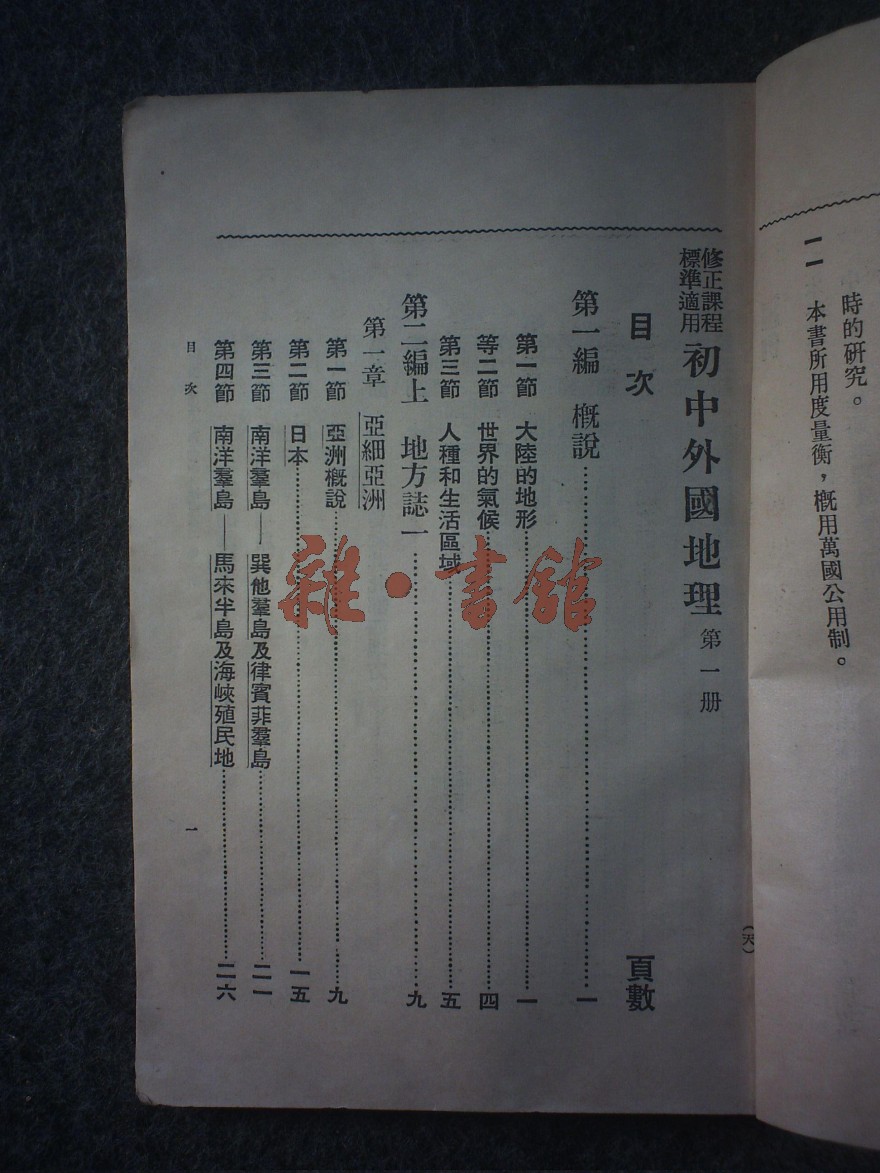 時的研究。
一一 本書所用度量衡，概用萬國公用制。
(天)
修正課程標準適用 初中外國地理 第一册
目次 頁數
第一編 概說……一
第一節 大陸的地形……一
等二節 世界的氣候……四
第三節 人種和生活區域……五
第二編上 地方誌一……九
第一章 亞細亞洲
第一節 亞洲概說……九
第二節 日本……一五
第三節 南洋羣島——巽他羣島及律賓菲羣島……二一
第四節 南洋羣島——馬來半島及海峽殖民地……二六
目次 一
雜·書館